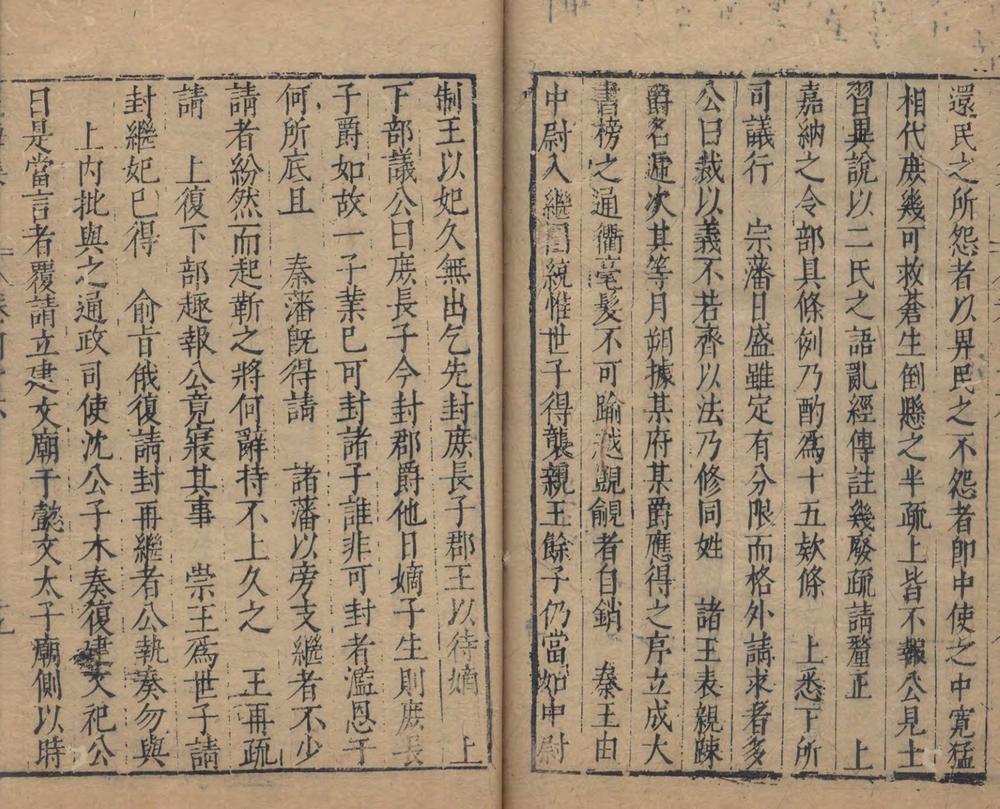 還民之所怨者以畀民之不怨者即中使之中寬猛
相代庶幾可救蒼生倒懸之半疏上皆不報公見士
習異說以二氏之語亂經傳註幾廢疏請釐正　上
嘉納之令部具條例乃酌爲十五欵條　上悉下所
司議行　宗藩日盛雖定有分限而格外請求者多
公曰裁以義不若齊以法乃修同姓　諸王表親踈
爵名遞次其等月朔據某府某爵應得之序立成大
書榜之通衢毫髮不可踰越覬覦者自銷　秦王由
中尉入繼統惟世子得襲親王餘子仍當如中尉
制王以妃久無出乞先封庶長子郡王以待嫡　上
下部議公曰庶長子今封郡爵他日嫡子生則庶長
子爵如故一子業已可封諸子誰非可封者濫恩于
何所底且　秦藩旣得請　諸藩以旁支繼者不少
請者紛然而起靳之將何辭持不上久之　王再疏
請　上復下部趣報公竟寢其事　崇王爲世子請
封繼妃已得　俞旨俄復請封再繼者公執奏勿與
上內批與之通政司使沈公子木奏復建文祀公
曰是當言者覆請立建文廟于懿文太子廟側以時